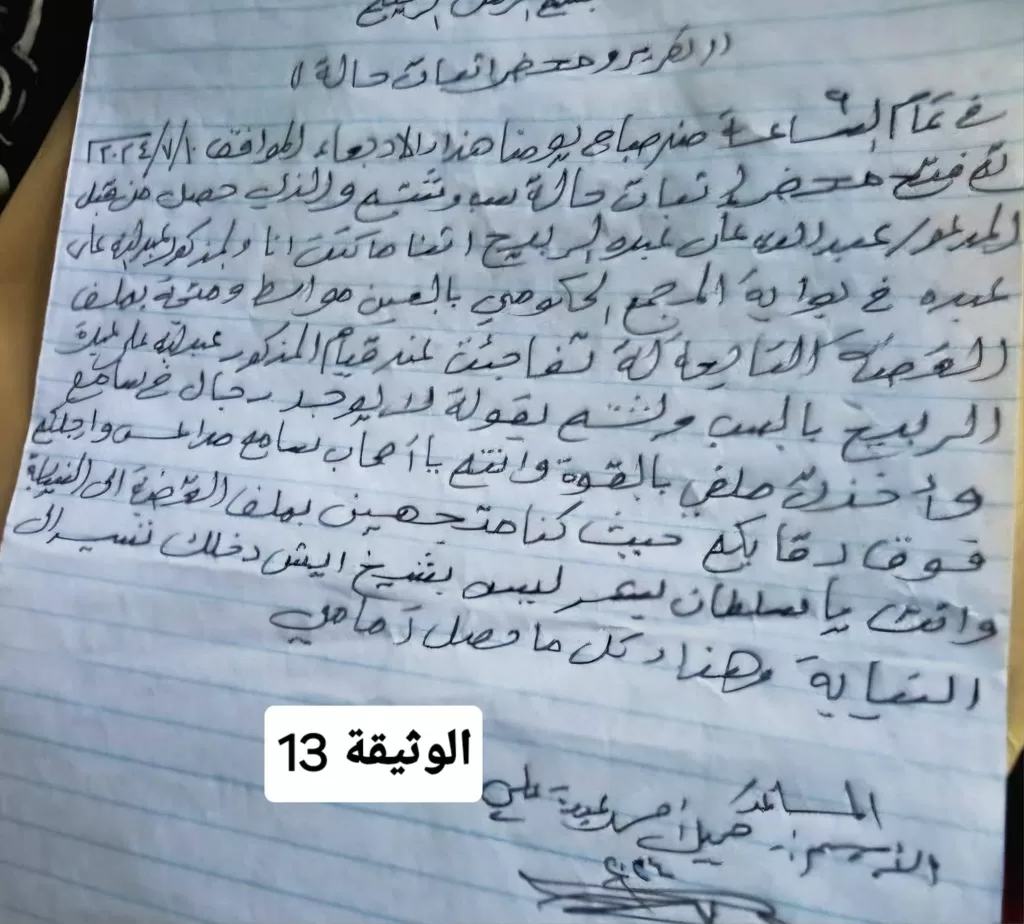 بسم الله الرحمن الرحيم
((تقرير ومحضر اثبات حالة))
في تمام الساعة 9 من صباح يومنا هذا الاربعاء الموافق ٢٠٢٤/٧/١٠
تم فتح محضر اثبات حالة سب وشتم والذي حصل من قبل
المدعو/ عبدالله علي عبده الربيح اثناء ما كنت انا والمذكور عبدالله علي
عبده في بوابة المجمع الحكومي بالعين مواسط ومعه بملف
القضية التابعة له تفاجئت عند قيام المذكور عبدالله علي عبدة
الربيح بالسب والشتم بقولة لا يوجد رجال في سامع
وأخذت ملفي بالقوة وانتم يا أصحاب سامع واجلكم
فوق رقابكم حيث كنا متجهين بملف القضية الى النيابة
وانت يا سلطان ليس بشيخ ايش دخلك تسير الى
النيابة وهذا كل ما حصل أمامي
المساعد
الاسم: جميل أحمد عبدة علي
الوثيقة 13